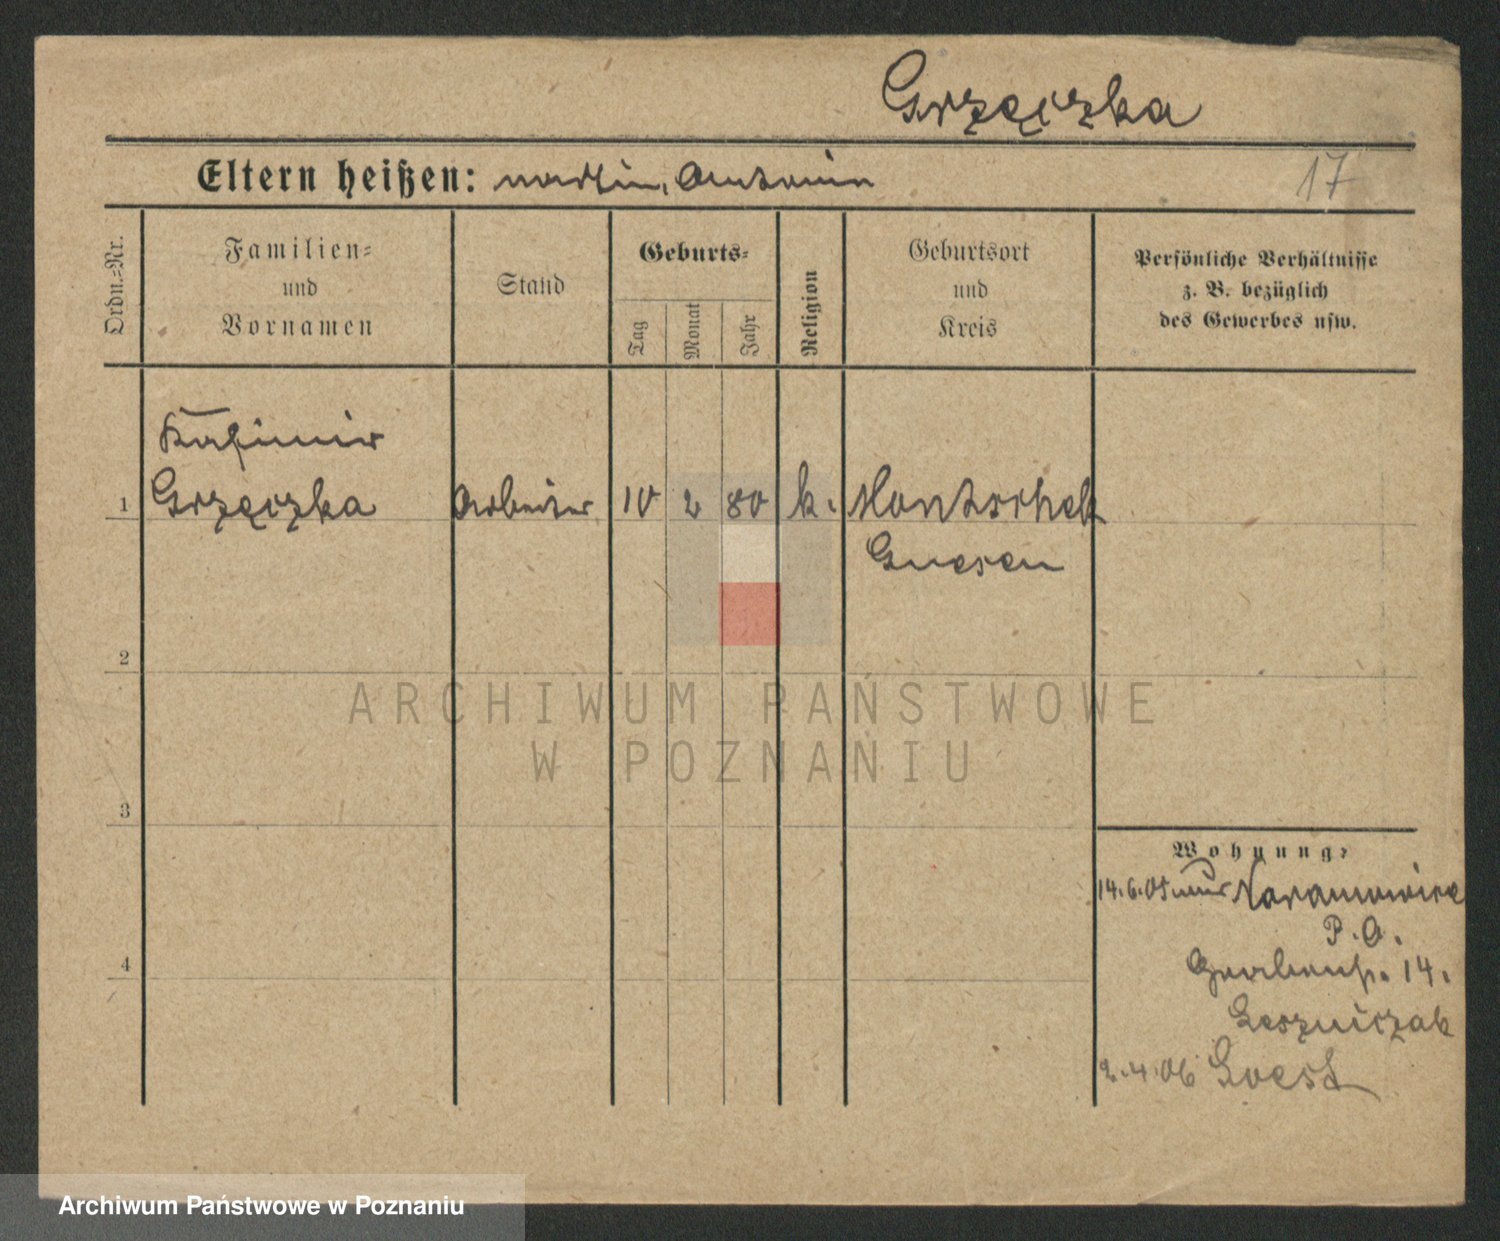 Grzęczka
Eltern heißen: Martin, Antonin
17
Ordn.-Nr.
Familien-
und
Vornamen
Stand
Geburts-
Tag
Monat
Jahr
Religion
Geburtsort
und
Kreis
Persönliche Verhältnisse
z. B. bezüglich
des Gewerbes usw.
Kasimir
1 Grzęczka Arbeiter 10 2 80 k. Montschek
Gnesen
2
ARCHIWUM PAŃSTWOWE
W POZNANIU
3
Wohnung:
14.6.05 Naramowice
P. O.
4
14.
2.4.06 Soest
Archiwum Państwowe w Poznaniu